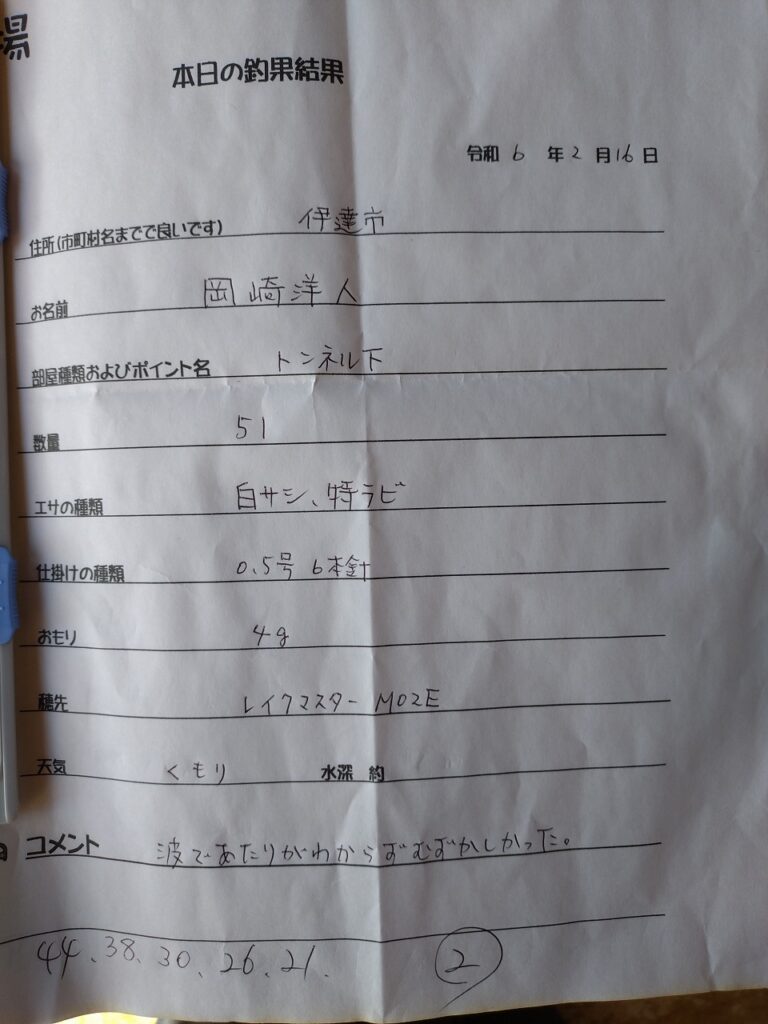 場
本日の釣果結果
令和 6 年 2 月 16 日
住所(市町村名までで良いです) 伊達市
お名前 岡崎洋人
部屋種類およびポイント名 トンネル下
数量 51
エサの種類 白サシ、特ラビ
仕掛けの種類 0.5号 6本針
おもり 4g
穂先 レイクマスター M02E
天気 くもり 水深 約
コメント 波であたりがわからずむずかしかった。
44、38、30、26、21. 2